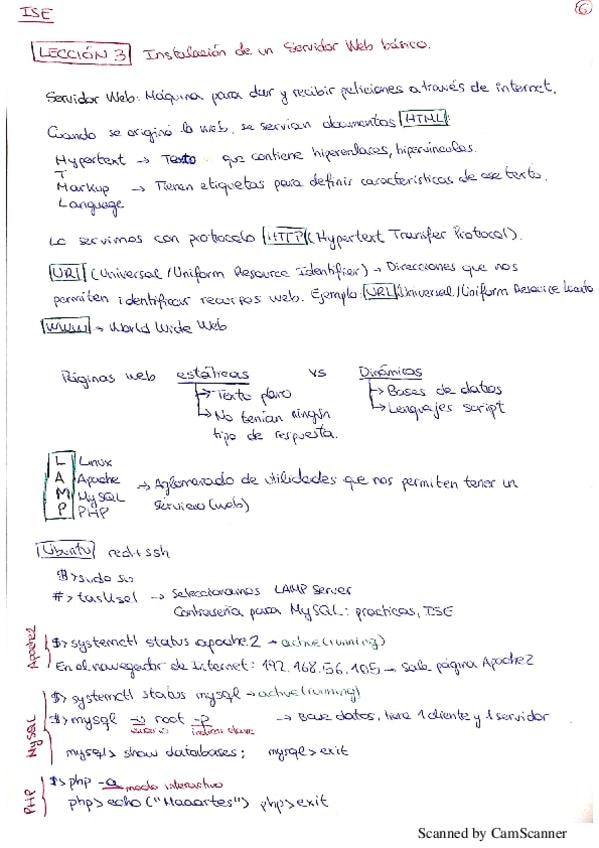 ISE
6
LECCIÓN 3 Instalación de un Servidor Web básico.
Servidor Web: Máquina para dar y recibir peticiones a través de internet.
Cuando se originó la web, se servían documentos HTML:
Hypertext → Texto que contiene hiperenlaces, hipervínculos.
T
Markup → Tienen etiquetas para definir características de ese texto.
Language
Lo servimos con protocolo HTTP (Hypertext Transfer Protocol).
URI (Universal/Uniform Resource Identifier) → Direcciones que nos
permiten identificar recursos web. Ejemplo: URL Universal/Uniform Resource
WWW → World Wide Web
Páginas web estáticas vs Dinámicas
→ Texto plano → Bases de datos
→ No tenían ningún → Lenguajes script
tipo de respuesta.
L Linux
A Apache → Aglomerado de utilidades que nos permiten tener un
M MySQL servicio (web)
P PHP
Ubuntu red+ssh
$> sudo su
#> tasksel → Seleccionamos LAMP server
Contraseña para MySQL: practicas, ISE
Apache2
$> systemctl status apache2 → active (running)
En el navegador de Internet: 192.168.56.105 → Sale página Apache2
MySQL
$> systemctl status mysql → active (running)
$> mysql -u root -p → Base datos, tiene 1 cliente y 1 servidor
usuario indica clave
mysql> show databases; mysql> exit
PHP
$> php -a modo interactivo
php> echo ("Maaartes") php> exit
Scanned by CamScanner